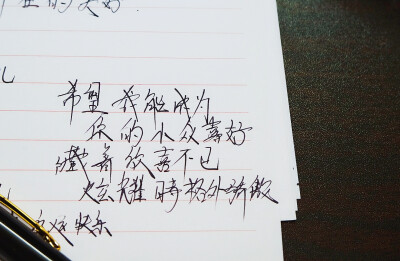 的美好.
儿
希望 我能成为
你的小众喜好
藏着欣喜不已
炫耀時格外骄傲
快乐